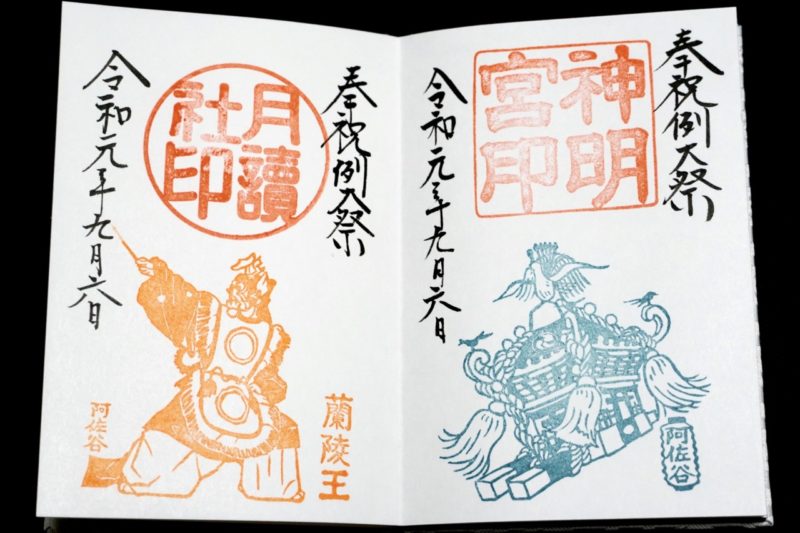 奉祝例大祭
神明
宮印
令和元年九月六日
阿佐谷
奉祝例大祭
月讀
社印
令和元年九月六日
蘭陵王
阿佐谷